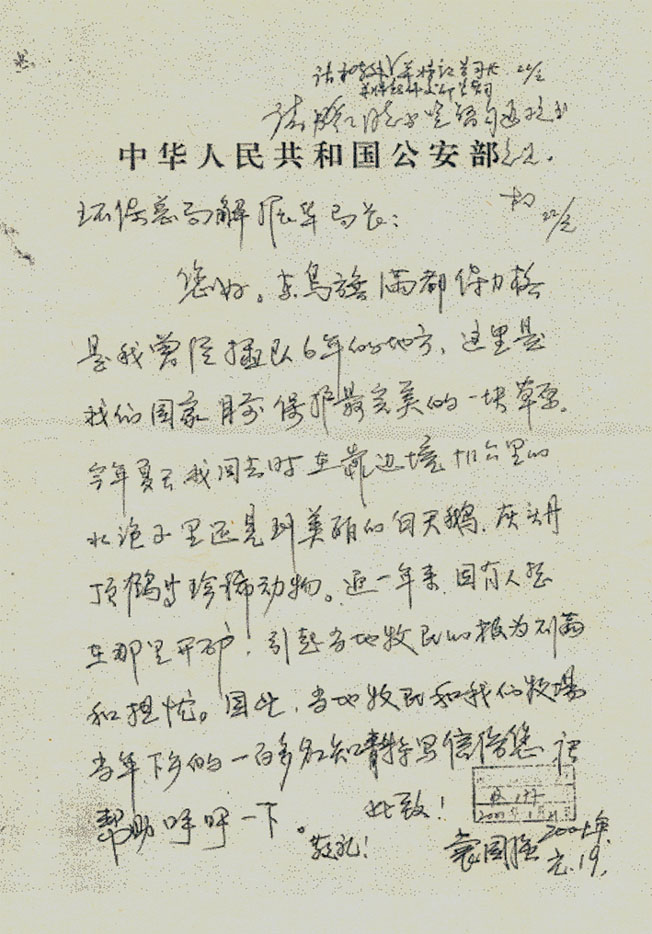 中华人民共和国公安部
环保总局解振华局长：
您好。东乌旗满都保力格
是我曾经插队6年的地方，这里是
我们国家目前保护最完美的一块草原。
今年夏天我回去时在靠边境十几公里的
水泡子里还见到美丽的白天鹅、灰头丹
顶鹤等珍稀动物。近一年来，因有人想
在那里开矿，引起当地牧民的极为不满
和担忧。因此，当地牧民和我们牧场
当年下乡的一百多名知青特写信给您，
帮助呼吁一下。 此致！
敬礼！ 袁国强 2001年
元.19.